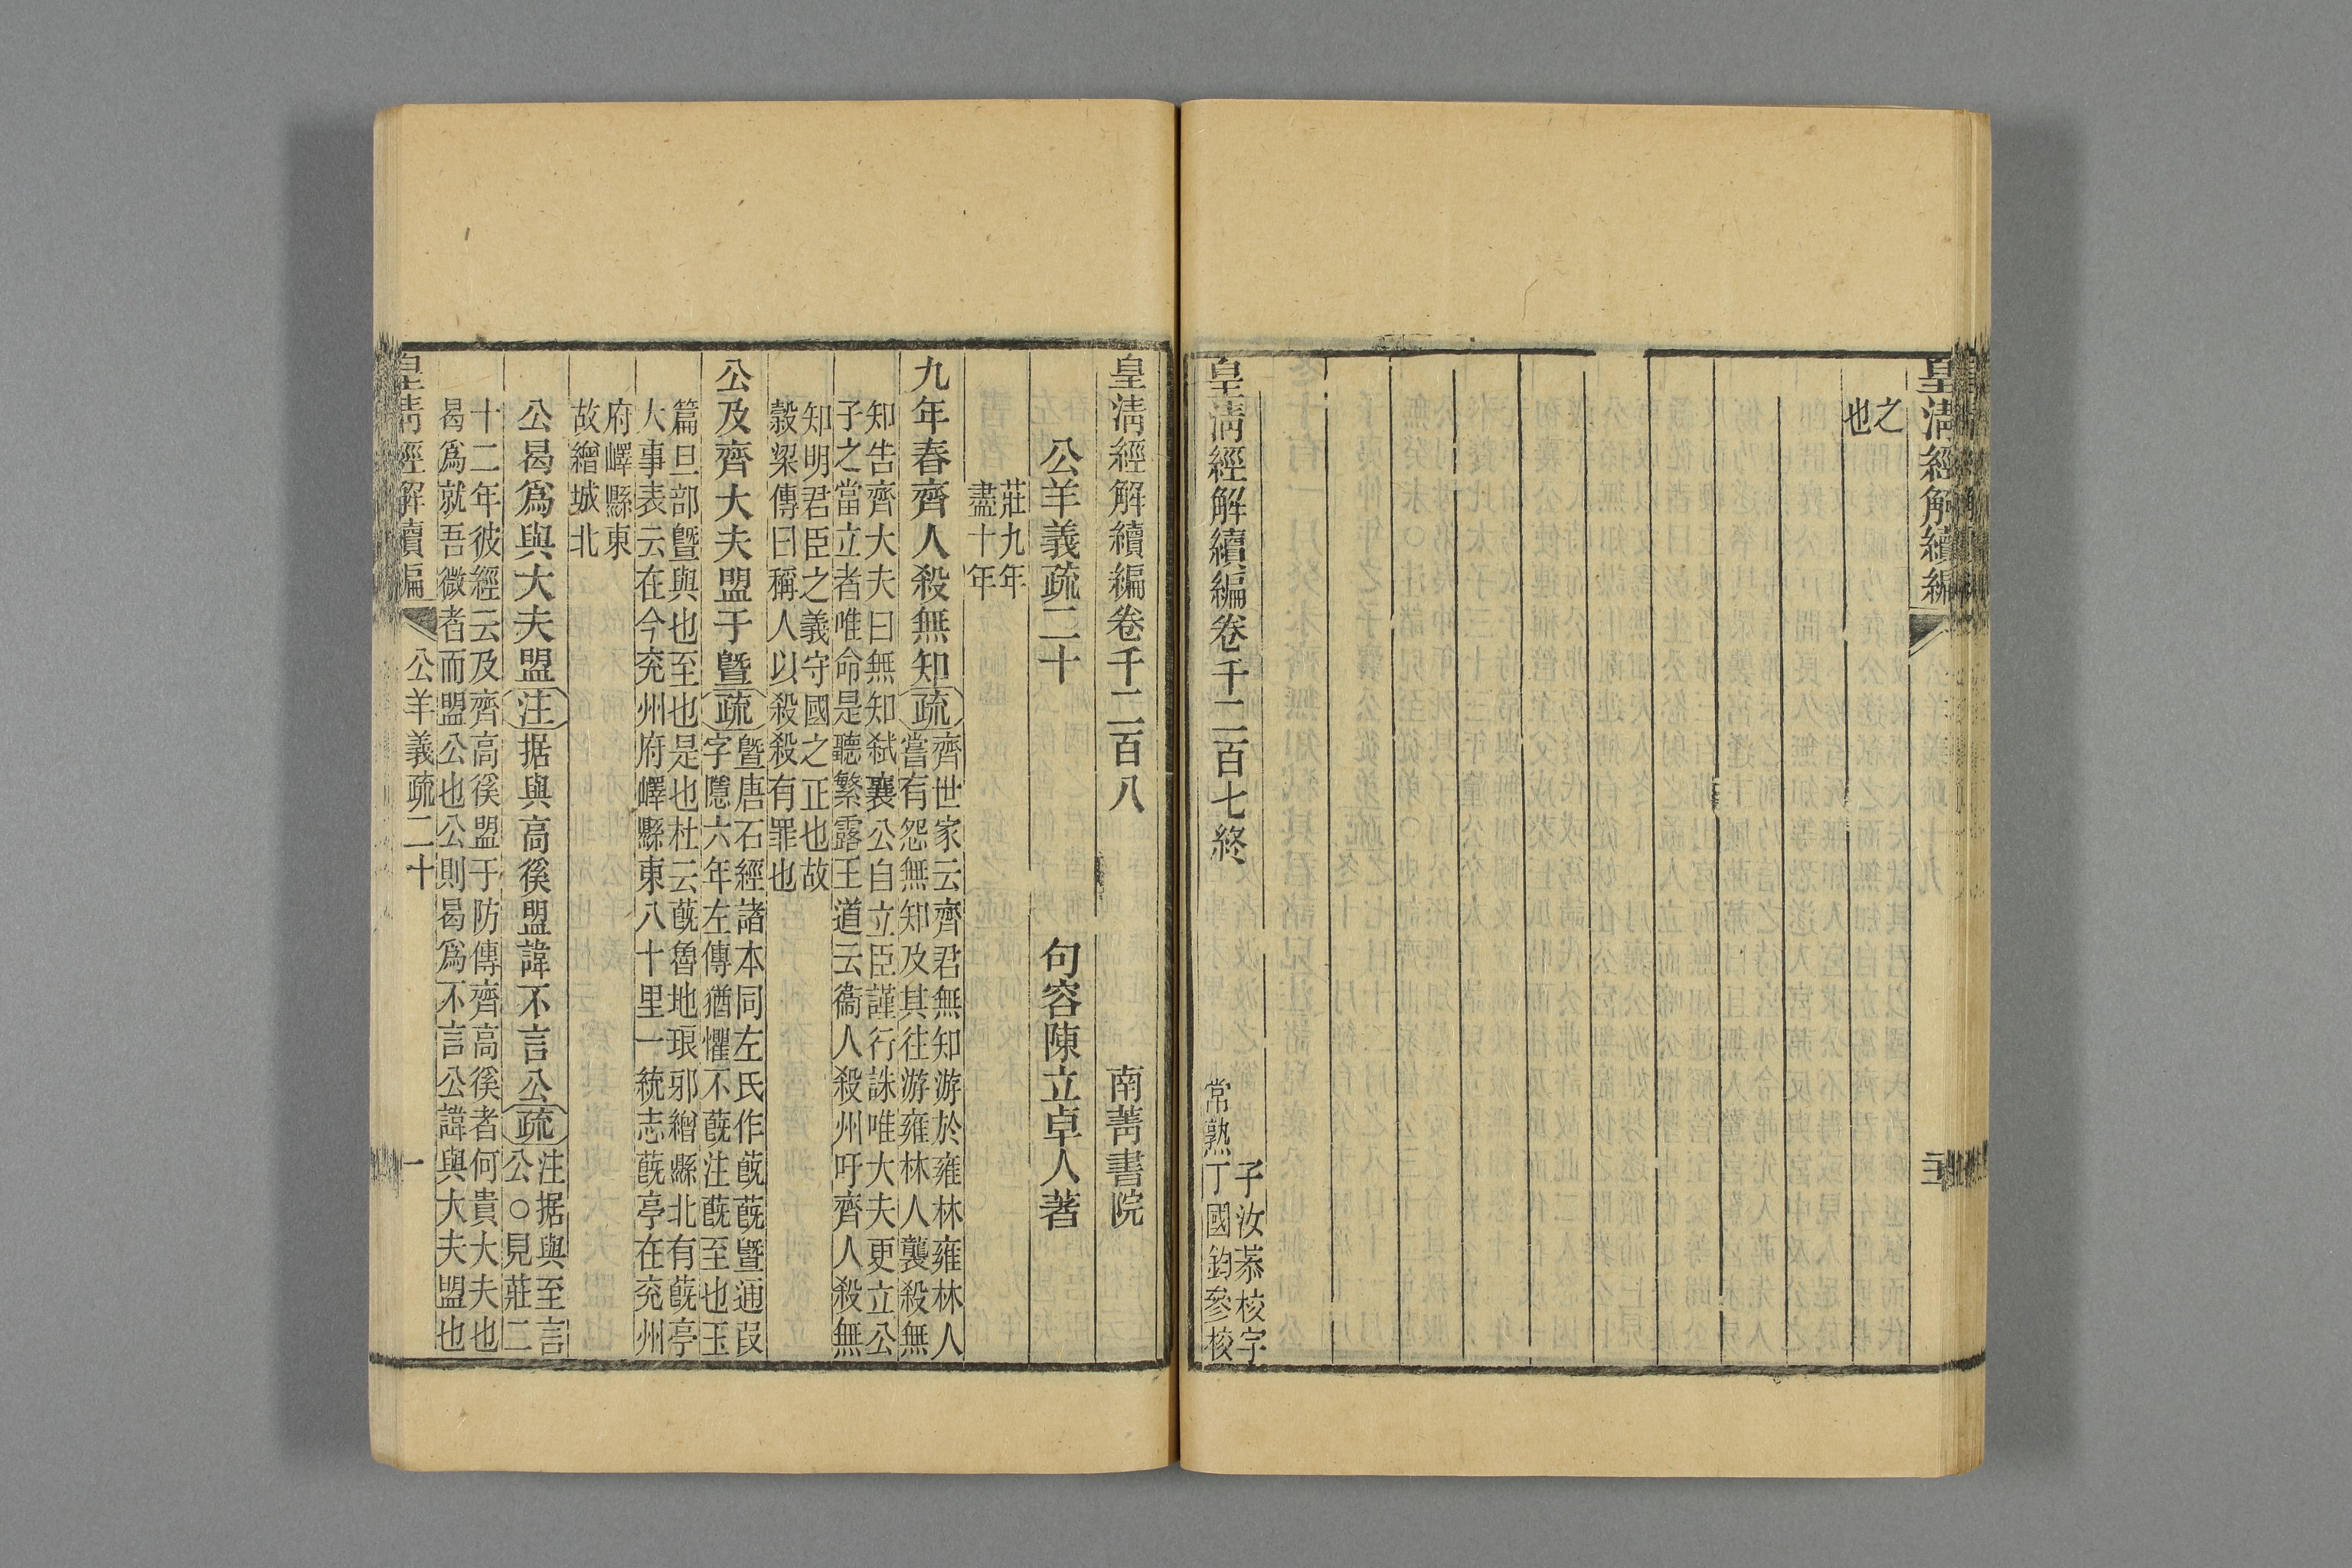 皇淸經解續編
之
也
皇淸經解續編卷千二百七終
常熟
子汝恭校字
丁國鈞參校
皇淸經解續編卷千二百八
南菁書院
公羊義疏二十
句容陳立卓人著
莊九年
盡十年
九年春齊人殺無知
疏
齊世家云齊君無知游於雍林雍林人
嘗有怨無知及其往游雍林人襲殺無
知告齊大夫曰無知弑襄公自立臣謹行誅唯大夫更立公
子之當立者唯命是聽繁露王道云衞人殺州吁齊人殺無
知明君臣之義守國之正也故
榖梁傳曰稱人以殺殺有罪也
公及齊大夫盟于曁
疏
曁唐石經諸本同左氏作蔇蔇曁通叚
字隱六年左傳猶懼不蔇注蔇至也玉
篇旦部曁與也至也是也杜云蔇魯地琅邪繒縣北有蔇亭
大事表云在今兖州府嶧縣東八十里一統志蔇亭在兖州
府嶧縣東
故繒城北
公曷爲與大夫盟
注
据與高徯盟諱不言公
疏
注据與至言
公○見莊二
十二年彼經云及齊高徯盟于防傳齊高徯者何貴大夫也
曷爲就吾微者而盟公也公則曷爲不言公諱與大夫盟也
皇淸經解續編
公羊義疏二十
一